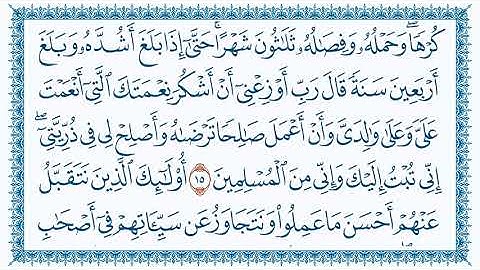 كُرْهًا ۖ وَحَمْلُهُۥ وَفِصَٰلُهُۥ ثَلَٰثُونَ شَهْرًا ۚ حَتَّىٰٓ إِذَا بَلَغَ أَشُدَّهُۥ وَبَلَغَ
أَرْبَعِينَ سَنَةً قَالَ رَبِّ أَوْزِعْنِىٓ أَنْ أَشْكُرَ نِعْمَتَكَ ٱلَّتِىٓ أَنْعَمْتَ
عَلَىَّ وَعَلَىٰ وَٰلِدَىَّ وَأَنْ أَعْمَلَ صَٰلِحًا تَرْضَىٰهُ وَأَصْلِحْ لِى فِى ذُرِّيَّتِىٓ ۖ
إِنِّى تُبْتُ إِلَيْكَ وَإِنِّى مِنَ ٱلْمُسْلِمِينَ ١٥ أُو۟لَٰٓئِكَ ٱلَّذِينَ نَتَقَبَّلُ
عَنْهُمْ أَحْسَنَ مَا عَمِلُوا۟ وَنَتَجَاوَزُ عَن سَيِّـَٔاتِهِمْ فِىٓ أَصْحَٰبِ